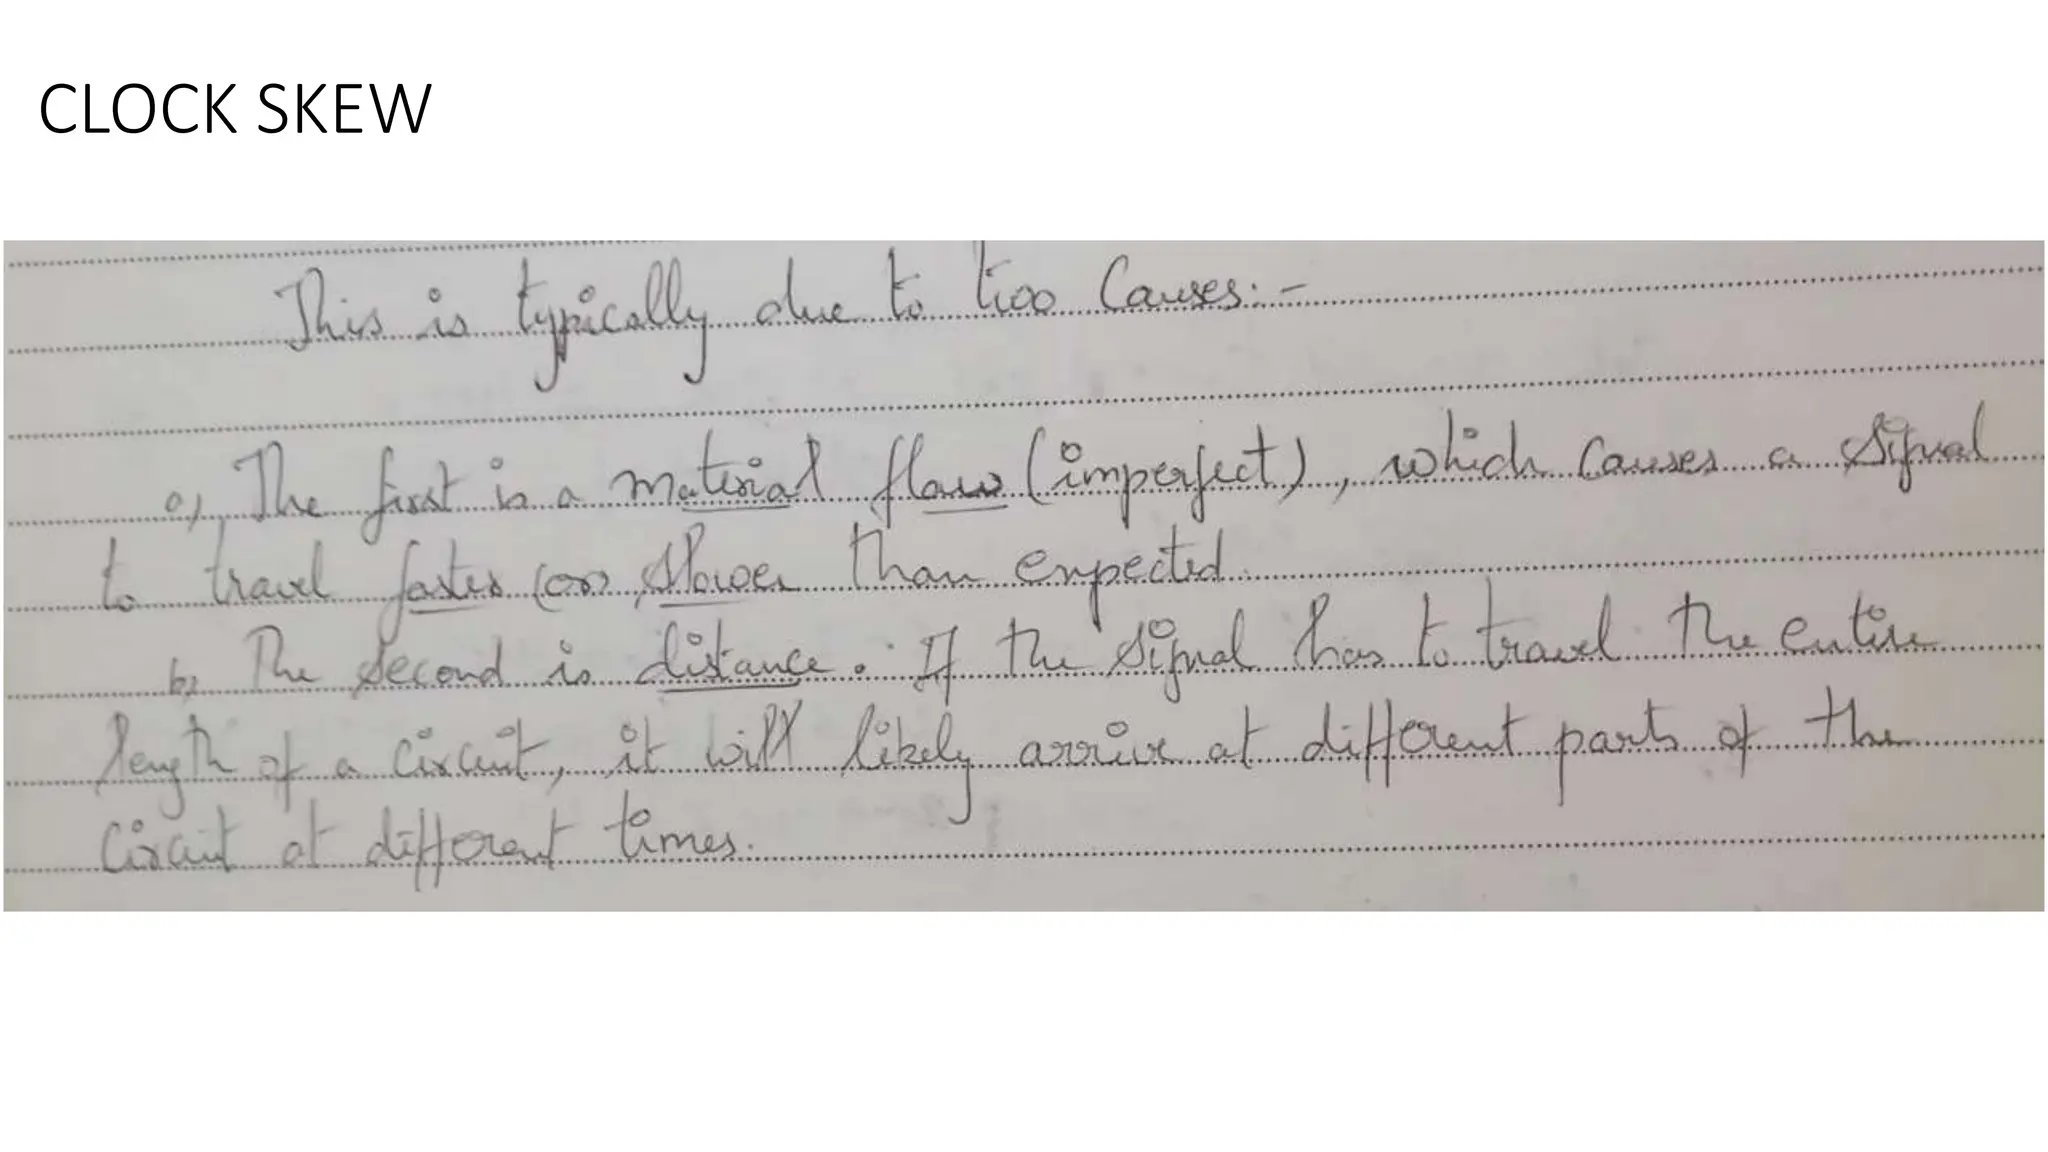 CLOCK SKEW
This is typically due to two Causes:-
a), The first is a material flaw (imperfect), which causes a signal
to travel faster (or) slower than expected.
b, The second is distance. If the signal has to travel the entire
length of a circuit, it will likely arrive at different parts of the
Circuit at different times.